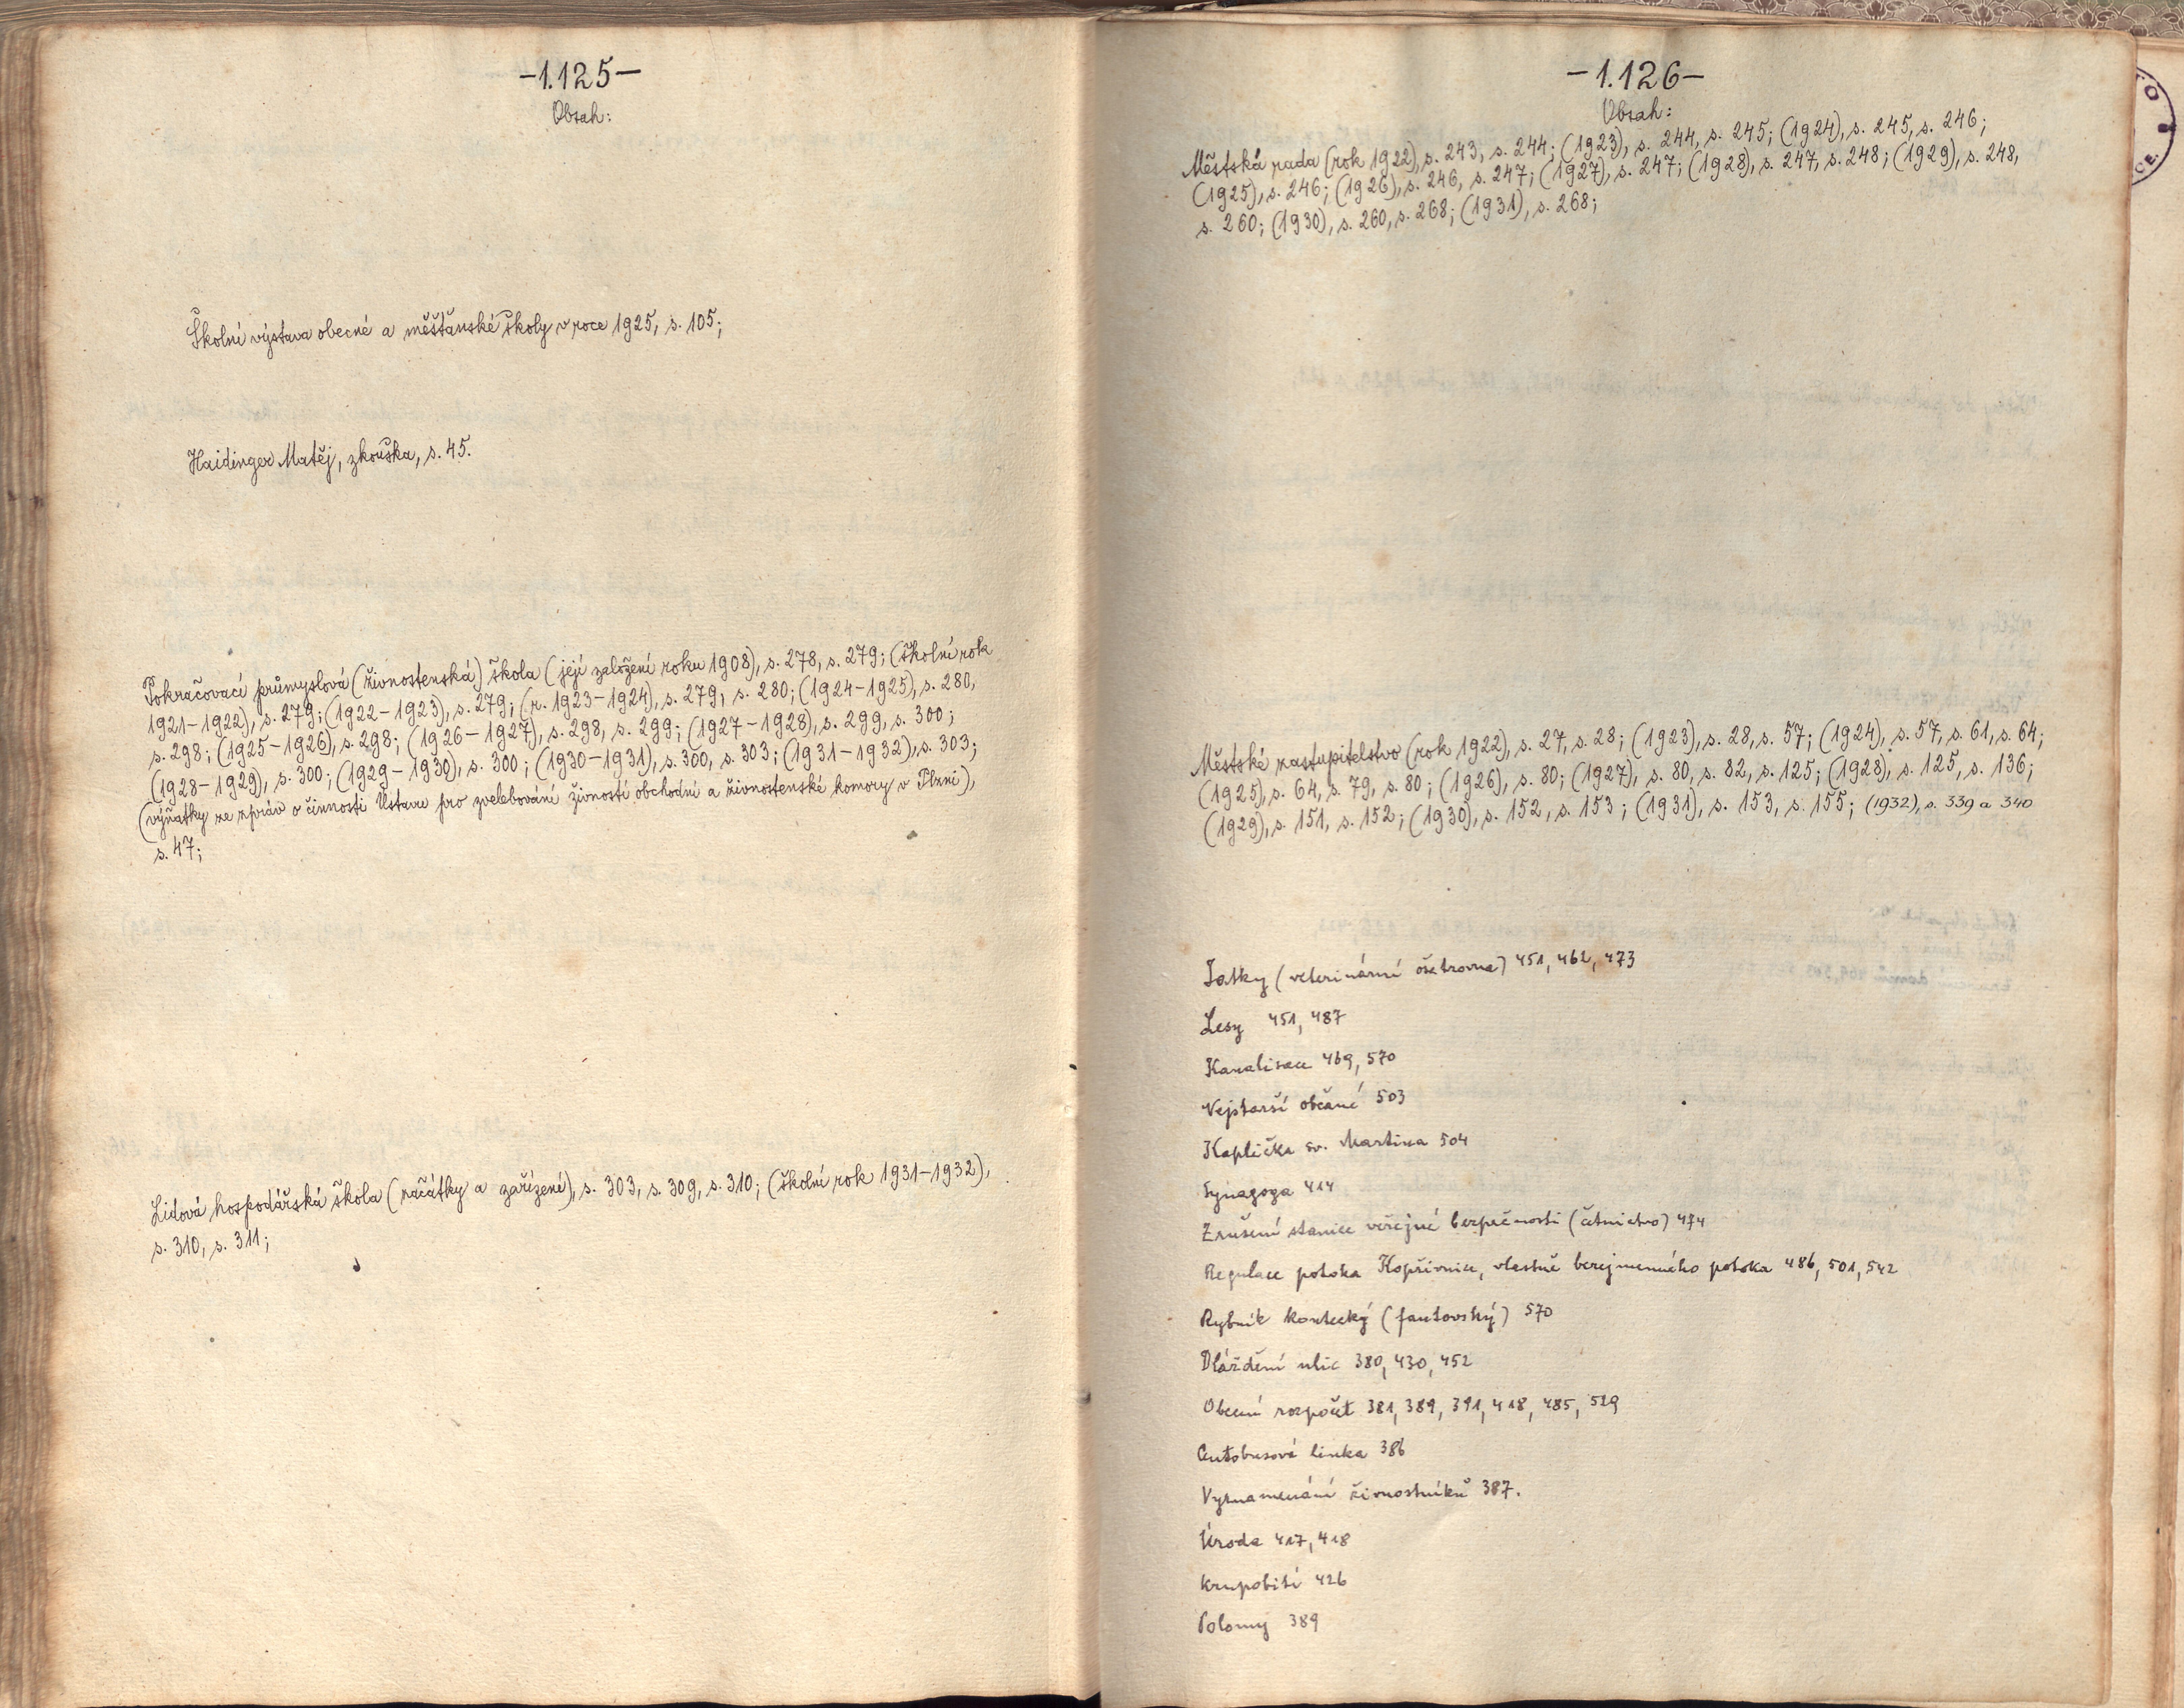 -1.125-
Obsah:
Školní výstava obecné a měšťanské školy v roce 1925, s. 105;
Haidinger Matěj, zkouška, s. 45.
Pokračovací průmyslová (živnostenská) škola (její založení roku 1908), s. 278, s. 279; (školní rok
1921-1922), s. 279; (1922-1923), s. 279; (r. 1923-1924), s. 279, s. 280; (1924-1925), s. 280,
s. 298; (1925-1926), s. 298; (1926-1927), s. 298, s. 299; (1927-1928), s. 299, s. 300;
(1928-1929), s. 300; (1929-1930), s. 300; (1930-1931), s. 300, s. 303; (1931-1932), s. 303;
(výňatky ze zpráv o činnosti Ústavu pro zvelebování živností obchodní a živnostenské komory v Plzni),
s. 47;
Lidová hospodářská škola (začátky a zařízení), s. 303, s. 309, s. 310; (školní rok 1931-1932),
s. 310, s. 311;
-1.126-
Obsah:
Městská rada (rok 1922), s. 243, s. 244; (1923), s. 244, s. 245; (1924), s. 245, s. 246;
(1925), s. 246; (1926), s. 246, s. 247; (1927), s. 247; (1928), s. 247, s. 248; (1929), s. 248,
s. 260; (1930), s. 260, s. 268; (1931), s. 268;
Městské zastupitelstvo (rok 1922), s. 27, s. 28; (1923), s. 28, s. 57; (1924), s. 57, s. 61, s. 64;
(1925), s. 64, s. 79, s. 80; (1926), s. 80; (1927), s. 80, s. 82, s. 125; (1928), s. 125, s. 136;
(1929), s. 151, s. 152; (1930), s. 152, s. 153; (1931), s. 153, s. 155; (1932), s. 339 a 340
Jatky (veterinární ošetrovna) 451, 462, 473
Lesy 451, 487
Kanalisace 469, 570
Nejstarší občané 503
Kaplička sv. Martina 504
Synagoga 414
Zrušení stanice veřejné bezpečnosti (četnictvo) 474
Regulace potoka Kopřivnice, vlastně bezejmenného potoka 486, 501, 542
Rybník kostecký (fantovský) 570
Dláždění ulic 380, 430, 452
Obecní rozpočet 381, 389, 391, 418, 485, 529
Autobusová linka 386
Vyznamenání živnostníků 387.
Úroda 417, 418
Krupobití 426
Polomy 389